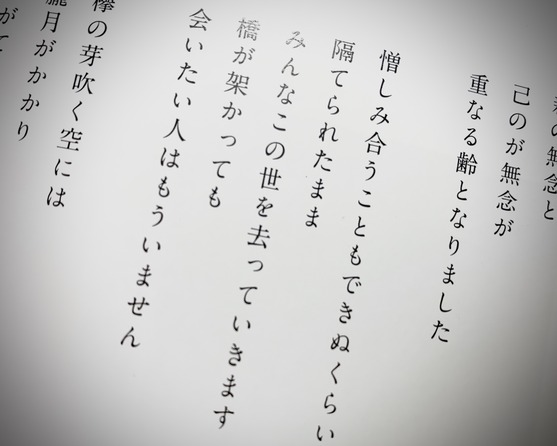 の無念と
己のが無念が
重なる齢となりました
憎しみ合うこともできぬくらい
隔てられたまま
みんなこの世を去っていきます
橋が架かっても
会いたい人はもういません
欅の芽吹く空には
朧月がかかり